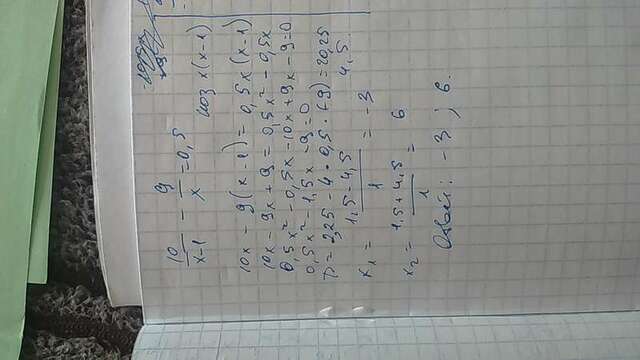 10/(x-1) - 9/x = 0,5
ноз x(x-1)
10x - 9(x-1) = 0,5x(x-1)
10x - 9x + 9 = 0,5x² - 0,5x
0,5x² - 0,5x - 10x + 9x - 9 = 0
0,5x² - 1,5x - 9 = 0
D = 2,25 - 4·0,5·(-9) = 20,25
4,5.
x₁ = (1,5 - 4,5)/1 = -3
x₂ = (1,5 + 4,5)/1 = 6
Ответ: -3 ; 6.